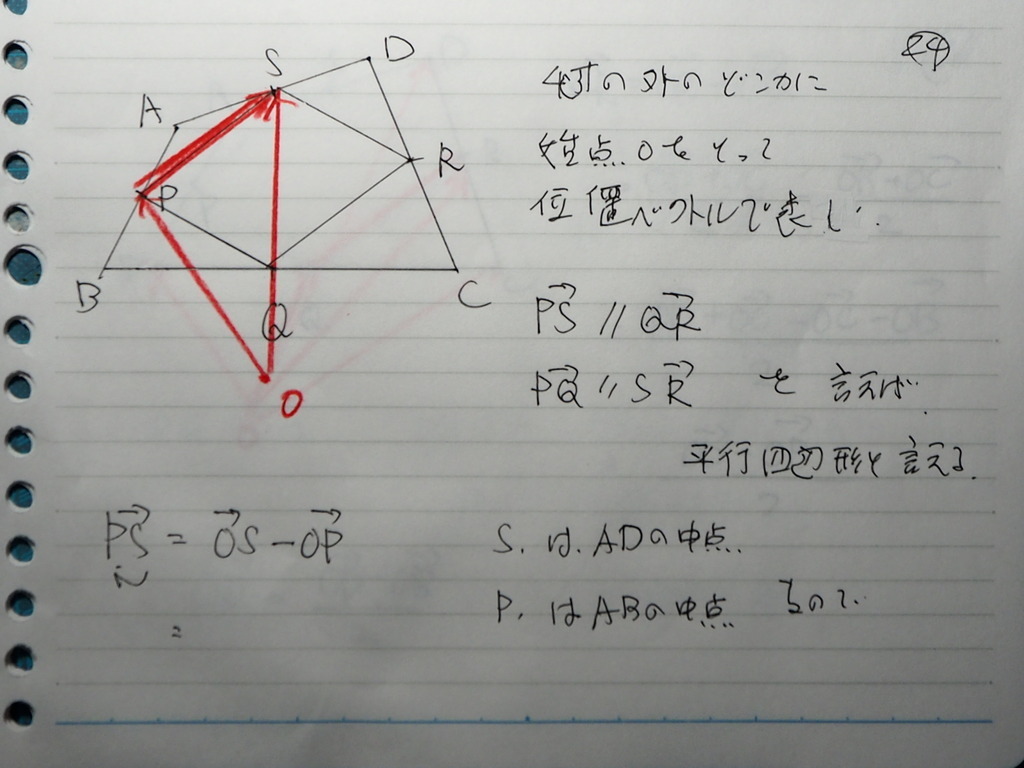 24
D
S
A
R
P
B
C
Q
O
外のどこかに
始点Oをとって
位置ベクトルで表し.
PS // QR
PQ // SR を 言えば.
平行四辺形と言える.
PS = OS - OP
=
S. は. ADの中点.
P. は ABの中点 なので.